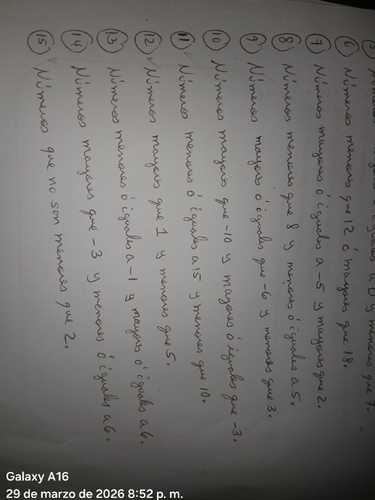 a 0 y menores que 7.
6 Números menores que 12 ó mayores que 18.
7 Números mayores ó iguales a -5 y mayores que 2.
8 Números menores que 8 y menores ó iguales a 5.
9 Números mayores ó iguales que -6 y menores que 3.
10 Números mayores que -10 y mayores ó iguales que -3.
11 Números menores ó iguales a 15 y menores que 10.
12 Números mayores que 1 y menores que 5.
13 Números menores ó iguales a -1 y mayores ó iguales a 6.
14 Números mayores que -3 y menores ó iguales a 6.
15 Números que no son menores que 2.
Galaxy A16
29 de marzo de 2026 8:52 p. m.